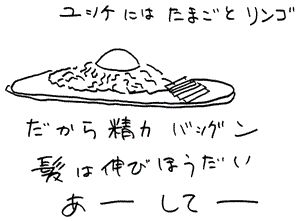 ユッケには たまごと リンゴ
だから 精力 バツグン
髪は伸びほうだい
あー してー